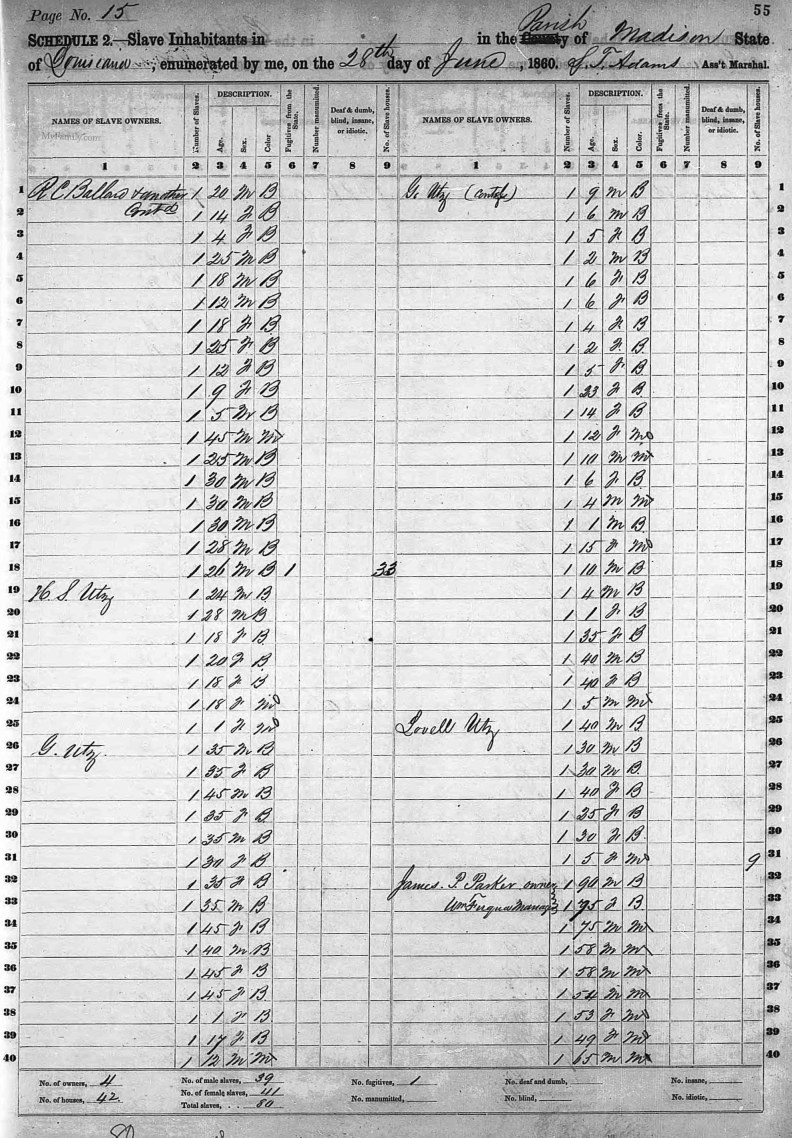 Page No. 15
55
SCHEDULE 2.—Slave Inhabitants in in the County Parish of Madison State
of Louisiana, enumerated by me, on the 28th day of June, 1860. S. F. Adams Ass't Marshal.
NAMES OF SLAVE OWNERS. Number of Slaves. DESCRIPTION. Age. Sex. Color Fugitives from the State. Number manumitted. Deaf & dumb, blind, insane, or idiotic. No. of Slave houses. NAMES OF SLAVE OWNERS. Number of Slaves. DESCRIPTION. Age. Sex. Color Fugitives from the State. Number manumitted. Deaf & dumb, blind, insane, or idiotic. No. of Slave houses.
MyFamily.com
1 2 3 4 5 6 7 8 9 1 2 3 4 5 6 7 8 9
1 R C Ballard & another 1 20 M B G. Utz 1 9 M B 1
2 Cont'd 1 14 F B 1 6 M B 2
3 1 4 F B 1 5 F B 3
4 1 25 M B 1 2 M B 4
5 1 18 M B 1 6 F B 5
6 1 12 M B 1 6 F B 6
7 1 18 F B 1 4 F B 7
8 1 25 F B 1 2 F B 8
9 1 12 F B 1 5 F B 9
10 1 9 F B 1 23 F B 10
11 1 5 M B 1 14 F B 11
12 1 45 M M 1 12 F M 12
13 1 25 M B 1 10 M M 13
14 1 30 M B 1 6 F B 14
15 1 30 M B 1 4 M M 15
16 1 30 M B 1 1 M B 16
17 1 28 M B 1 15 F M 17
18 1 26 M B 1 33 1 10 M B 18
19 H. S. Utz 1 24 M B 1 4 M B 19
20 1 28 M B 1 1 F B 20
21 1 18 F B 1 35 F B 21
22 1 20 F B 1 40 M B 22
23 1 18 F B 1 40 F B 23
24 1 18 F M 1 5 M M 24
25 1 1 F M Lovell Utz 1 40 M B 25
26 G. Utz. 1 35 M B 1 30 M B 26
27 1 35 F B 1 30 M B 27
28 1 45 M B 1 40 F B 28
29 1 35 F B 1 25 F B 29
30 1 35 M B 1 30 F B 30
31 1 30 F B 1 5 F M 9 31
32 1 35 F B James. P. Parker owner 1 90 M B 32
33 1 35 M B Wm Manager 1 75 F B 33
34 1 45 F B 1 75 M M 34
35 1 40 M B 1 58 M M 35
36 1 45 F B 1 58 M M 36
37 1 45 F B 1 54 M M 37
38 1 1 F B 1 53 F M 38
39 1 17 F B 1 49 F M 39
40 1 12 M M 1 65 M M 40
No. of owners, 4 No. of male slaves, 39 No. fugitives, 1 No. of deaf and dumb, No. of insane,
No. of houses, 42. No. of female slaves, 41 No. manumitted, No. of blind, No. of idiotic,
Total slaves, 80